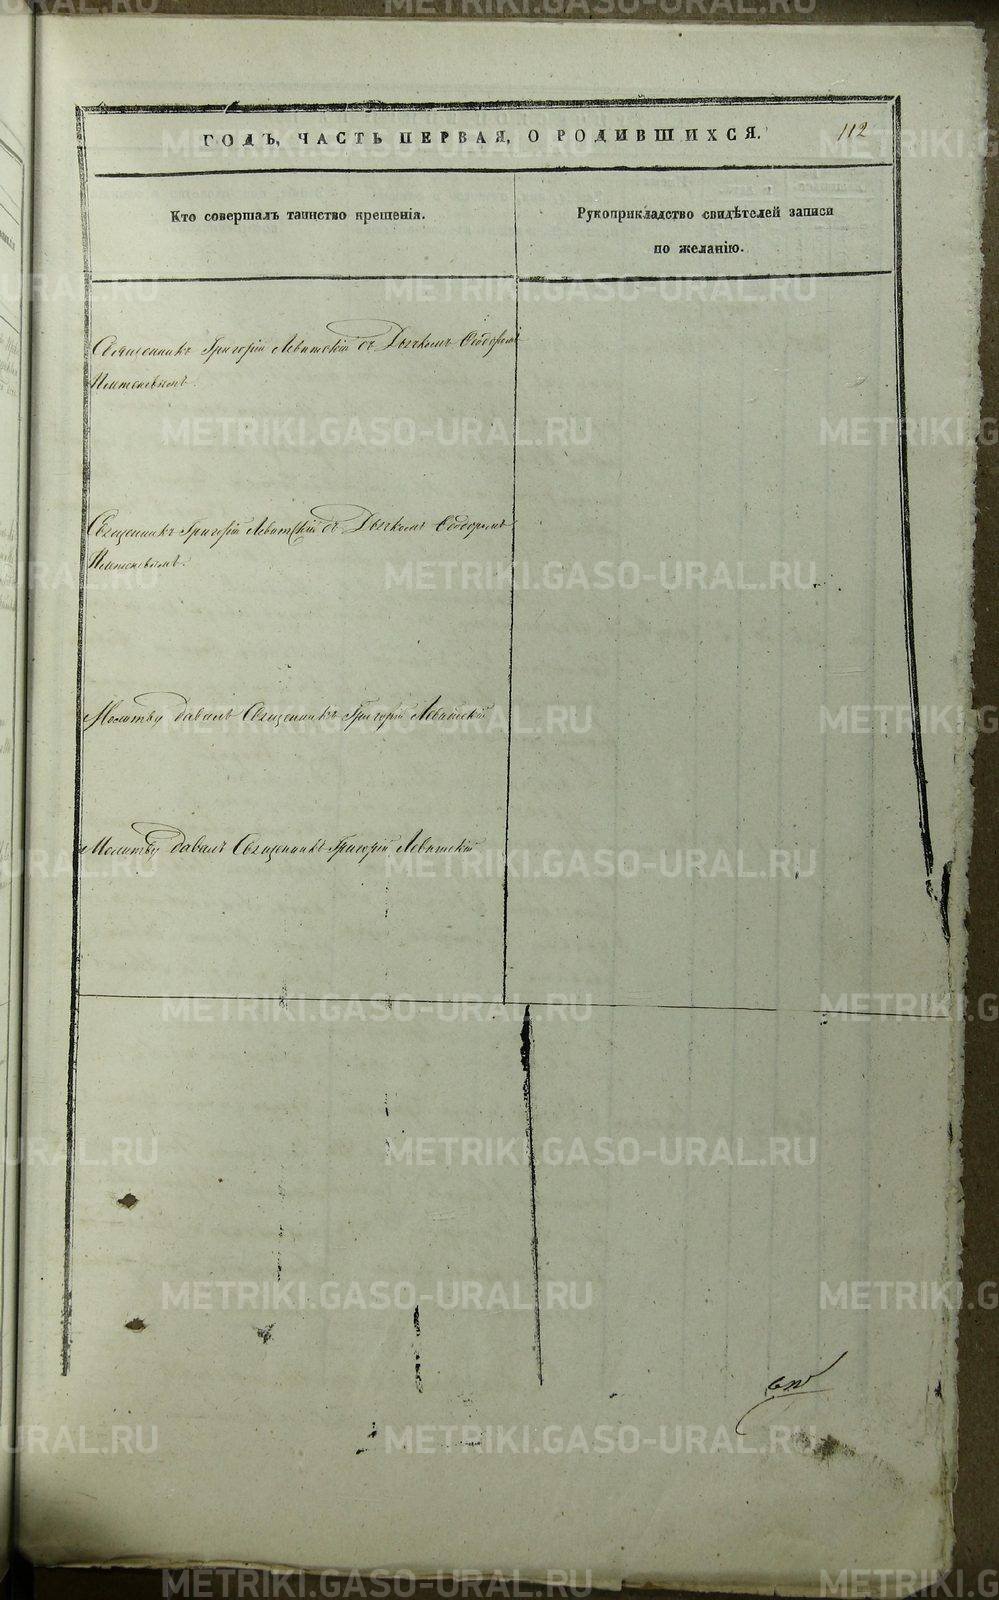 ГОДЪ, ЧАСТЬ ПЕРВАЯ, О РОДИВШИХСЯ.
112
Кто совершалъ таинство крещенія.
Рукоприкладство свидѣтелей записи
по желанію.
Священникъ Григорій Левитскій съ Дьячкомъ Ѳеодоромъ
Священникъ Григорій Левитскій съ Дьячкомъ Ѳеодоромъ
Молитву давалъ Священникъ Григорій Левитскій
Молитву давалъ Священникъ Григорій Левитскій
METRIKI.GASO-URAL.RU